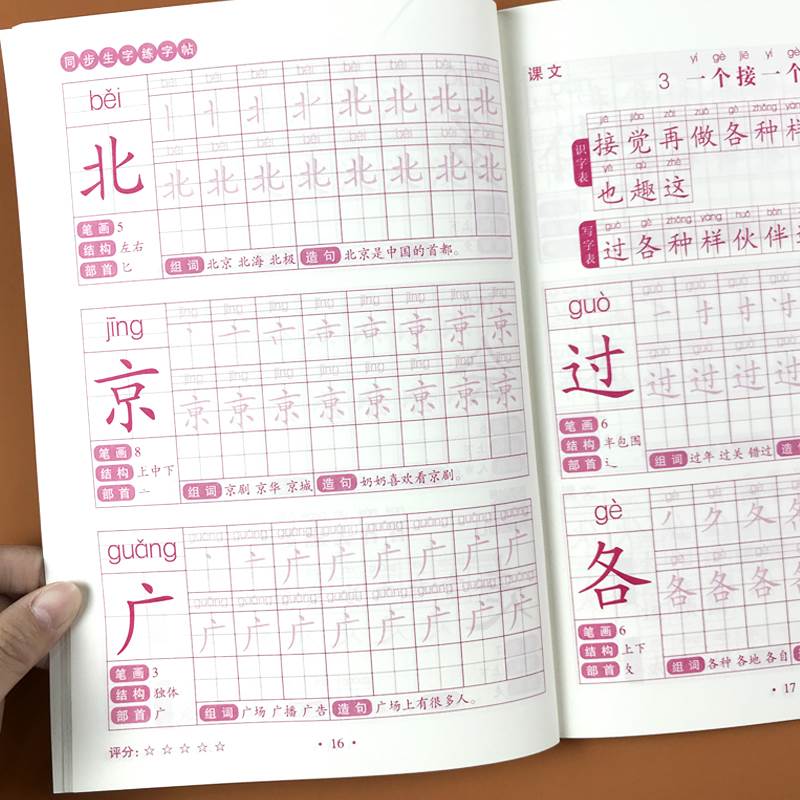 同步生字练字帖
běi
běi běi běi běi běi běi běi běi
北 北 北 北 北
běi běi běi běi běi běi běi běi
北 北 北 北 北 北 北 北
北
笔画 5
结构 左右
部首 匕
组词 北京 北海 北极 造句 北京是中国的首都。
jīng
jīng jīng jīng jīng jīng jīng jīng jīng
京 京 京
jīng jīng jīng jīng jīng jīng jīng jīng
京 京 京 京 京 京 京 京
京
笔画 8
结构 上中下
部首 亠
组词 京剧 京华 京城 造句 奶奶喜欢看京剧。
guǎng
guǎng guǎng guǎng guǎng guǎng guǎng guǎng guǎng
广 广 广 广 广 广
guǎng guǎng guǎng guǎng guǎng guǎng guǎng guǎng
广 广 广 广 广 广 广 广
广
笔画 3
结构 独体
部首 广
组词 广场 广播 广告 造句 广场上有很多人。
评分: ☆ ☆ ☆ ☆ ☆
· 16 ·
课文
yí gè jiē yí gè
3 一个接一个
识字表
jiē jiào zài zuò gè zhǒng yàng
接觉再做各种样
yě qù zhè
也趣这
写字表
guò gè zhǒng yàng huǒ bàn
过各种样伙伴这
guò
guò guò guò guò
过
guò guò guò guò
过 过 过 过
过
笔画 6
结构 半包围
部首 辶
组词 过年 过关 错过
gè
gè gè gè gè
各
gè gè gè gè
各 各 各 各
各
笔画 6
结构 上下
部首 夂
组词 各种 各地 各自
· 17